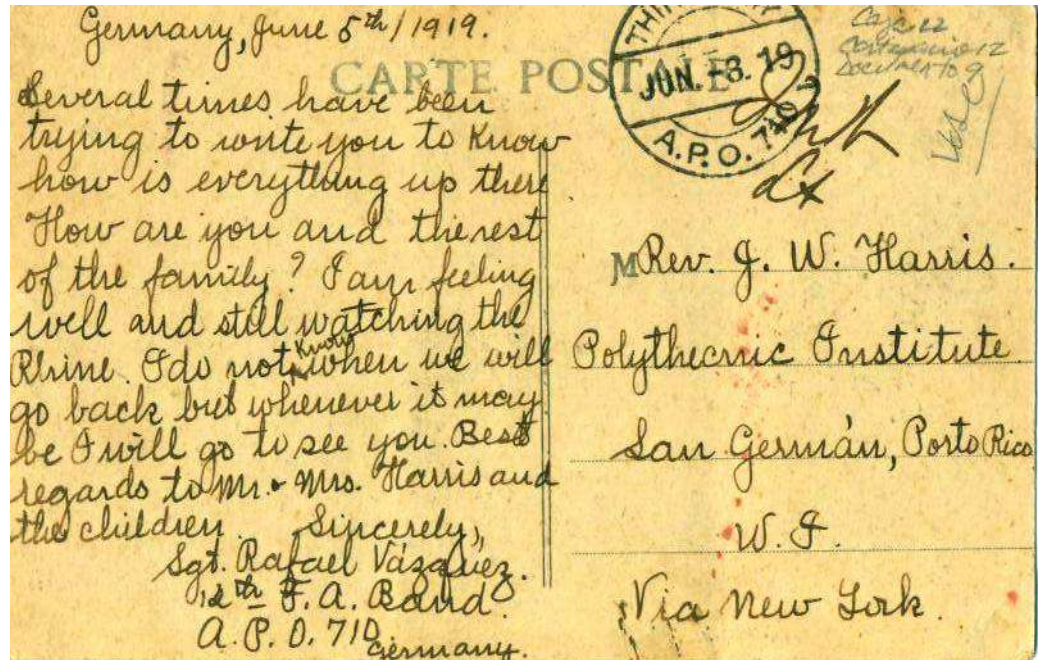 Germany, June 5th/1919.
CARTE POSTALE
Several times have been
trying to write you to know
how is everything up there
How are you and the rest
of the family? I am feeling
well and still watching the
Rhine. I do not know when we will
go back but whenever it may
be I will go to see you. Best
regards to Mr. & Mrs. Harris and
the children. Sincerely,
Sgt. Rafael Vázquez.
12th F. A. Band
A. P. O. 710
Germany.
JUN. -8. 19
A.P.O. 710
Caja 22
Documento 9
M Rev. J. W. Harris.
Polythecnic Institute
San Germán, Porto Rico
W. I.
Via New York.